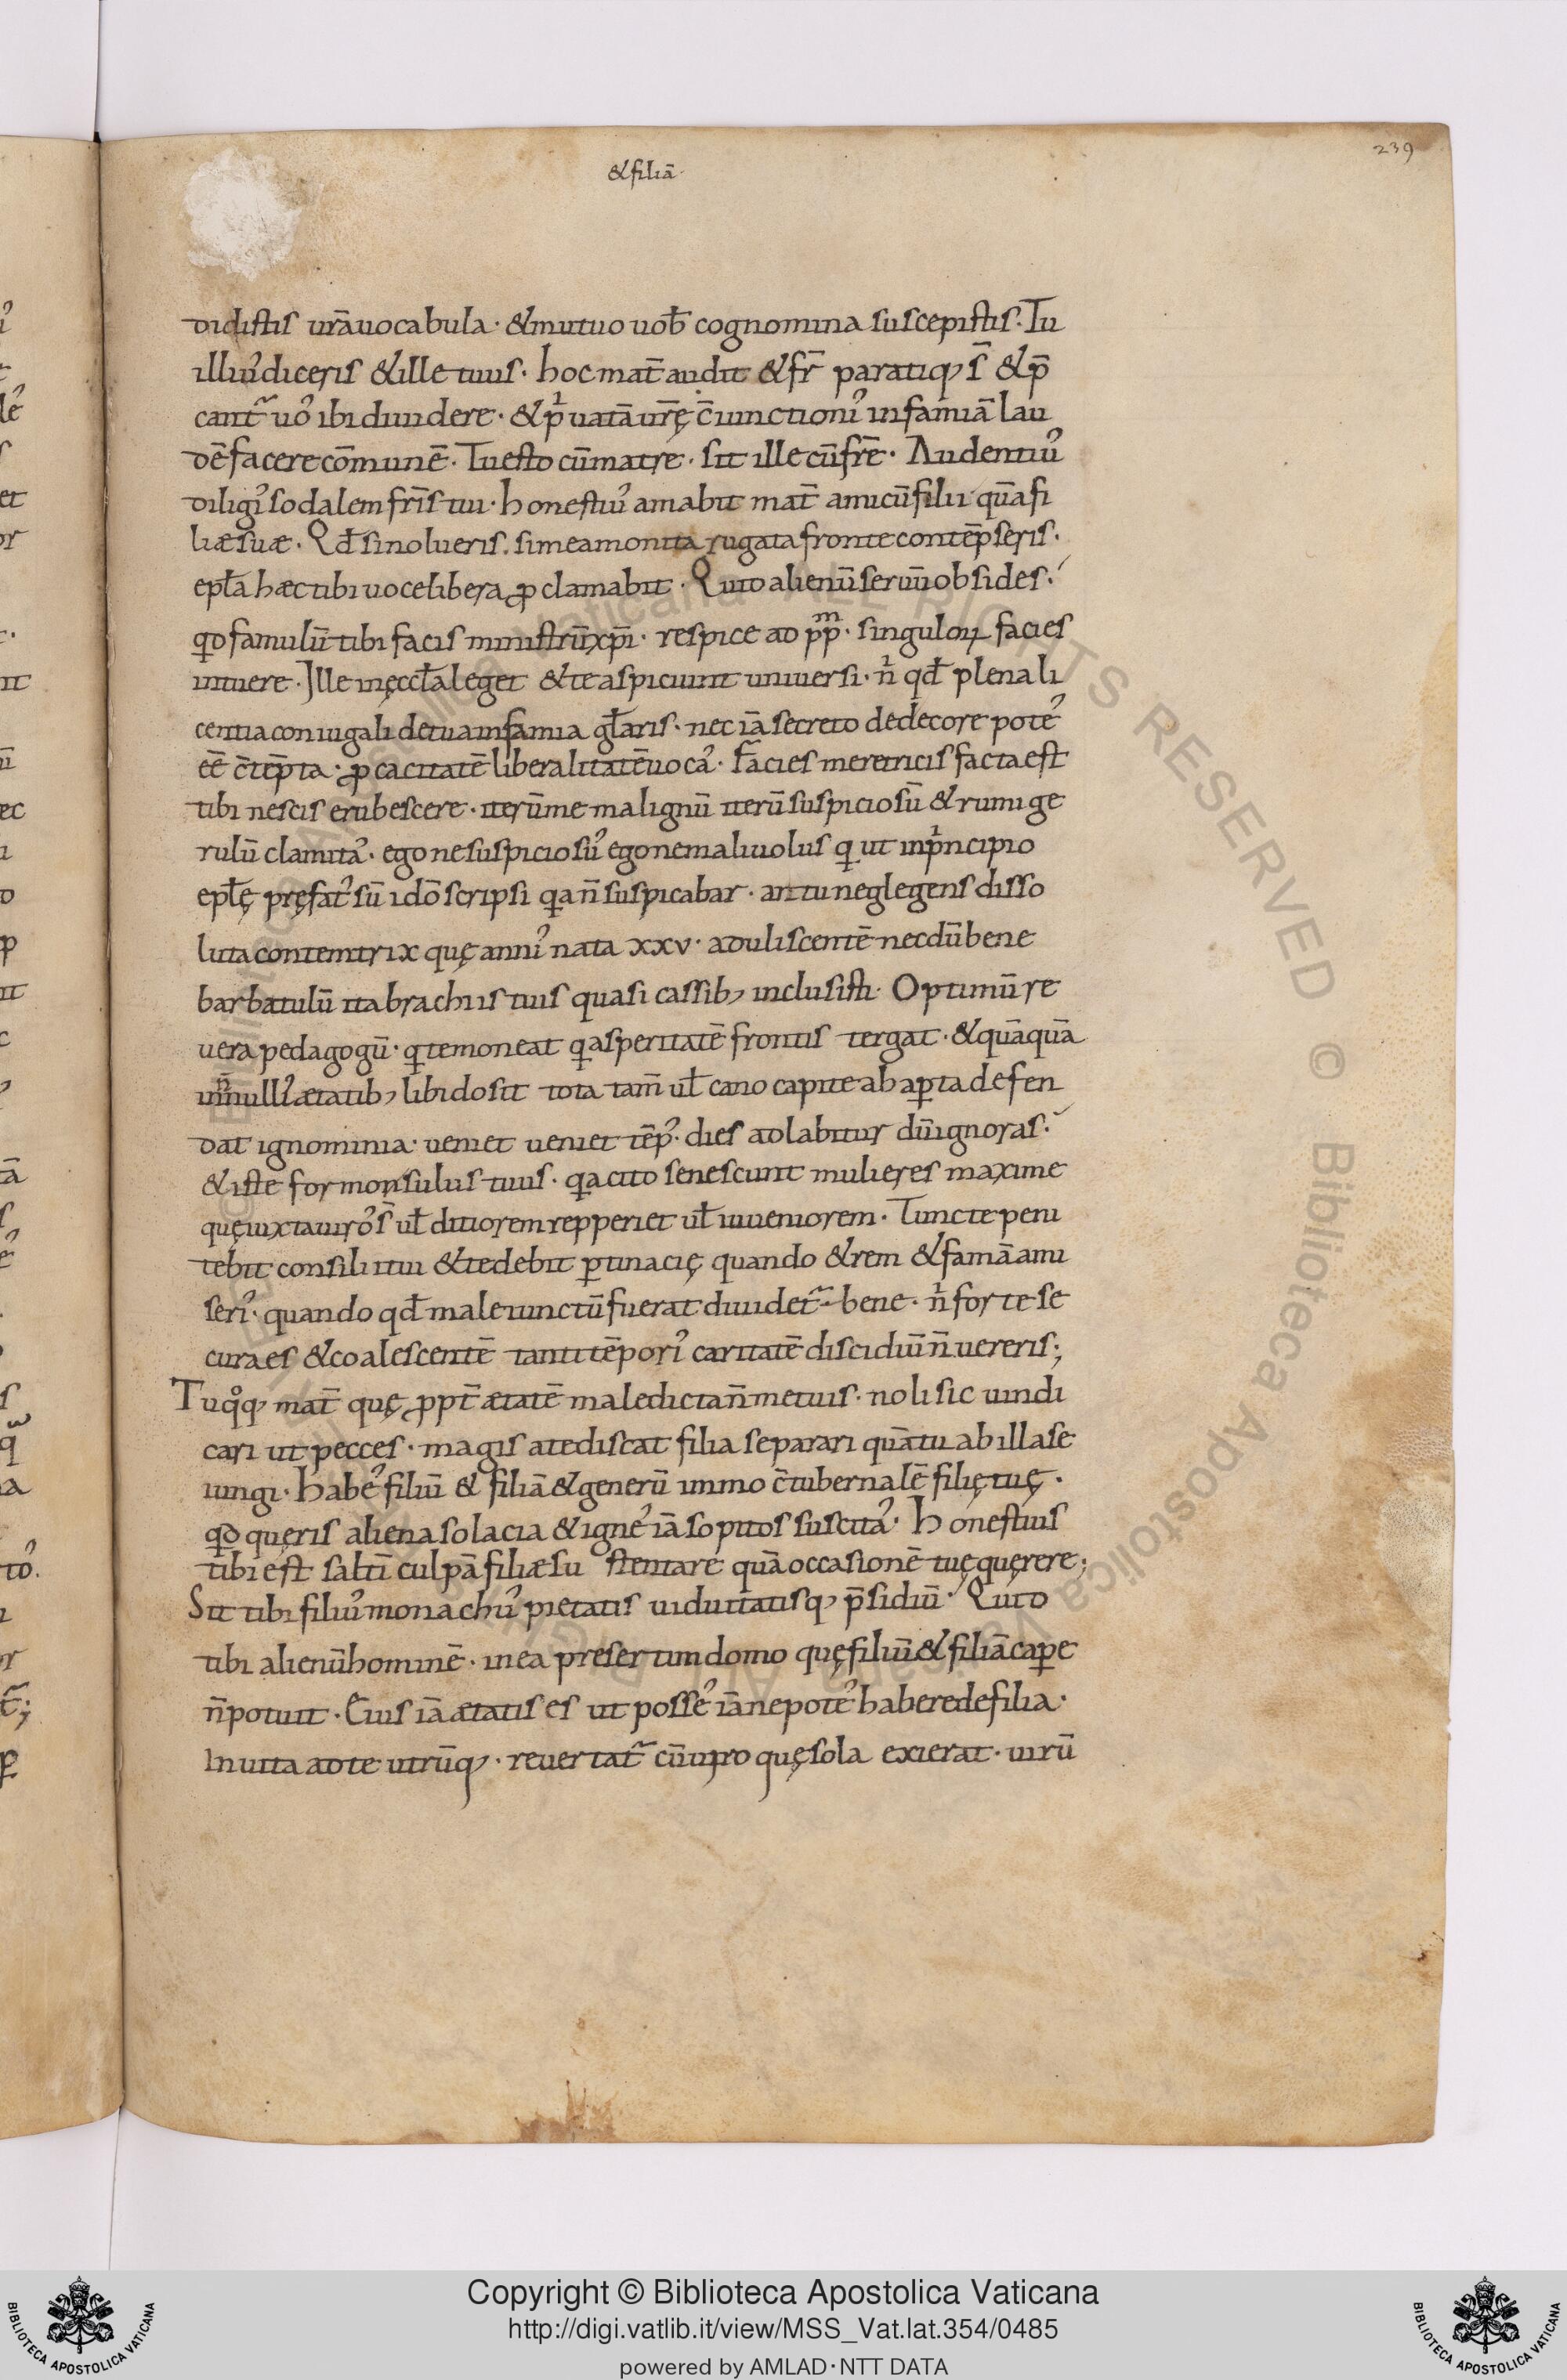 239
&filiā·
didistis vrā uocabula· & mutuo uob̄ cognomina suscepistis· Tu
illiu᾽ diceris & ille tuus· hoc mat̄ audit & fr̄ paratiq; s̄ & p̄
cant᷑ uo᾽ ibi diuidere· & pͥuatā ur̄ę c̄iunctioni᾽ infamiā lau
dē facere cōmunē· Tu esto cū matre· sit ille cū fr̄e· Audentiu᾽
diligi᾽ sodalem fr̄is tui· honestiu᾽ amabit mat̄ amicū filii quā fi
liæ suæ· Qđ si nolueris. si mea monita rugata fronte contēpseris·
epła hæc tibi uoce libera ꝓclamabit· Quid alienū seruū obsides·
qd famulū tibi facis ministrū xp̄i· respice ad pp̄m· singuloꝝ facies
intuere· Ille in ęccła leget & te aspiciunt uniuersi· nͥ qđ plena li
centia coniugali de tua infamia głaris· nec iā secreto dedecore pote᾽
ēē c̄tēpta· ꝓcacitatē liberalitatē uoca᾽· Facies meretricis facta est
tibi nescis erubescere· iterū me malignū iterū suspiciosū & rumige
rulū clamita᾽· egone suspiciosu᾽ egone maliuolus q ut in pͥncipio
epłę pręfat᾽ sū idō scripsi qa n̄ suspicabar· an tu neglegens disso
luta contemtrix quę anni᾽ nata xxv· aduliscentē necdū bene
barbatulū ita brachiis tuis quasi cassib; inclusisti· Optimū re
uera pedagogū· q te moneat q asperitatē frontis tergat· & quāquā
in nulli᾽ ætatib; libido sit tota tam̄ uł cano capite ab aꝑta defen
dat ignominia· ueniet ueniet tēp᾽· dies adlabitur dū ignoras·
& iste formonsulus tuus· qa cito senescunt mulieres maxime
quę iuxta uiro᾽ s̄ uł ditiorem repperiet uł iuueniorem· Tunc te peni
tebit consilii tui & tedebit ꝑtinacię quando & rem & famā ami
seri᾽· quando qđ male iunctū fuerat diuidet᷑ bene· nͥ forte se
cura es & coalescentē tanti tēpori᾽ caritatē discidiū n̄ uereris;
Tu qͦq; mat̄ quę ꝓpt̄ ætatē maledicta n̄ metuis· noli sic uindi
cari ut pecces· magis a te discat filia separari quā tu ab illa se
iungi· Habe᾽ filiū & filiā & generū immo c̄tubernalē filię tuę·
qd queris aliena solacia & igne᾽ iā sopitos suscita᾽· Honestius
tibi est saltī culpā filiæ su stentare quā occasionē tuę quęrere;
Sit tibi filiu᾽ monachu᾽ pietatis uiduitatisq; p̄sidiū· Quid
tibi alienū hominē· in ea presertim domo quę filiū & filiā caꝑe
n̄ potuit· Eius iā ætatis es ut posse᾽ iā nepote᾽ habere de filia·
Inuita ad te utrūq;· reuertat᷑ cū uiro quę sola exierat· uirū
Copyright © Biblioteca Apostolica Vaticana
http://digi.vatlib.it/view/MSS_Vat.lat.354/0485
powered by AMLAD·NTT DATA